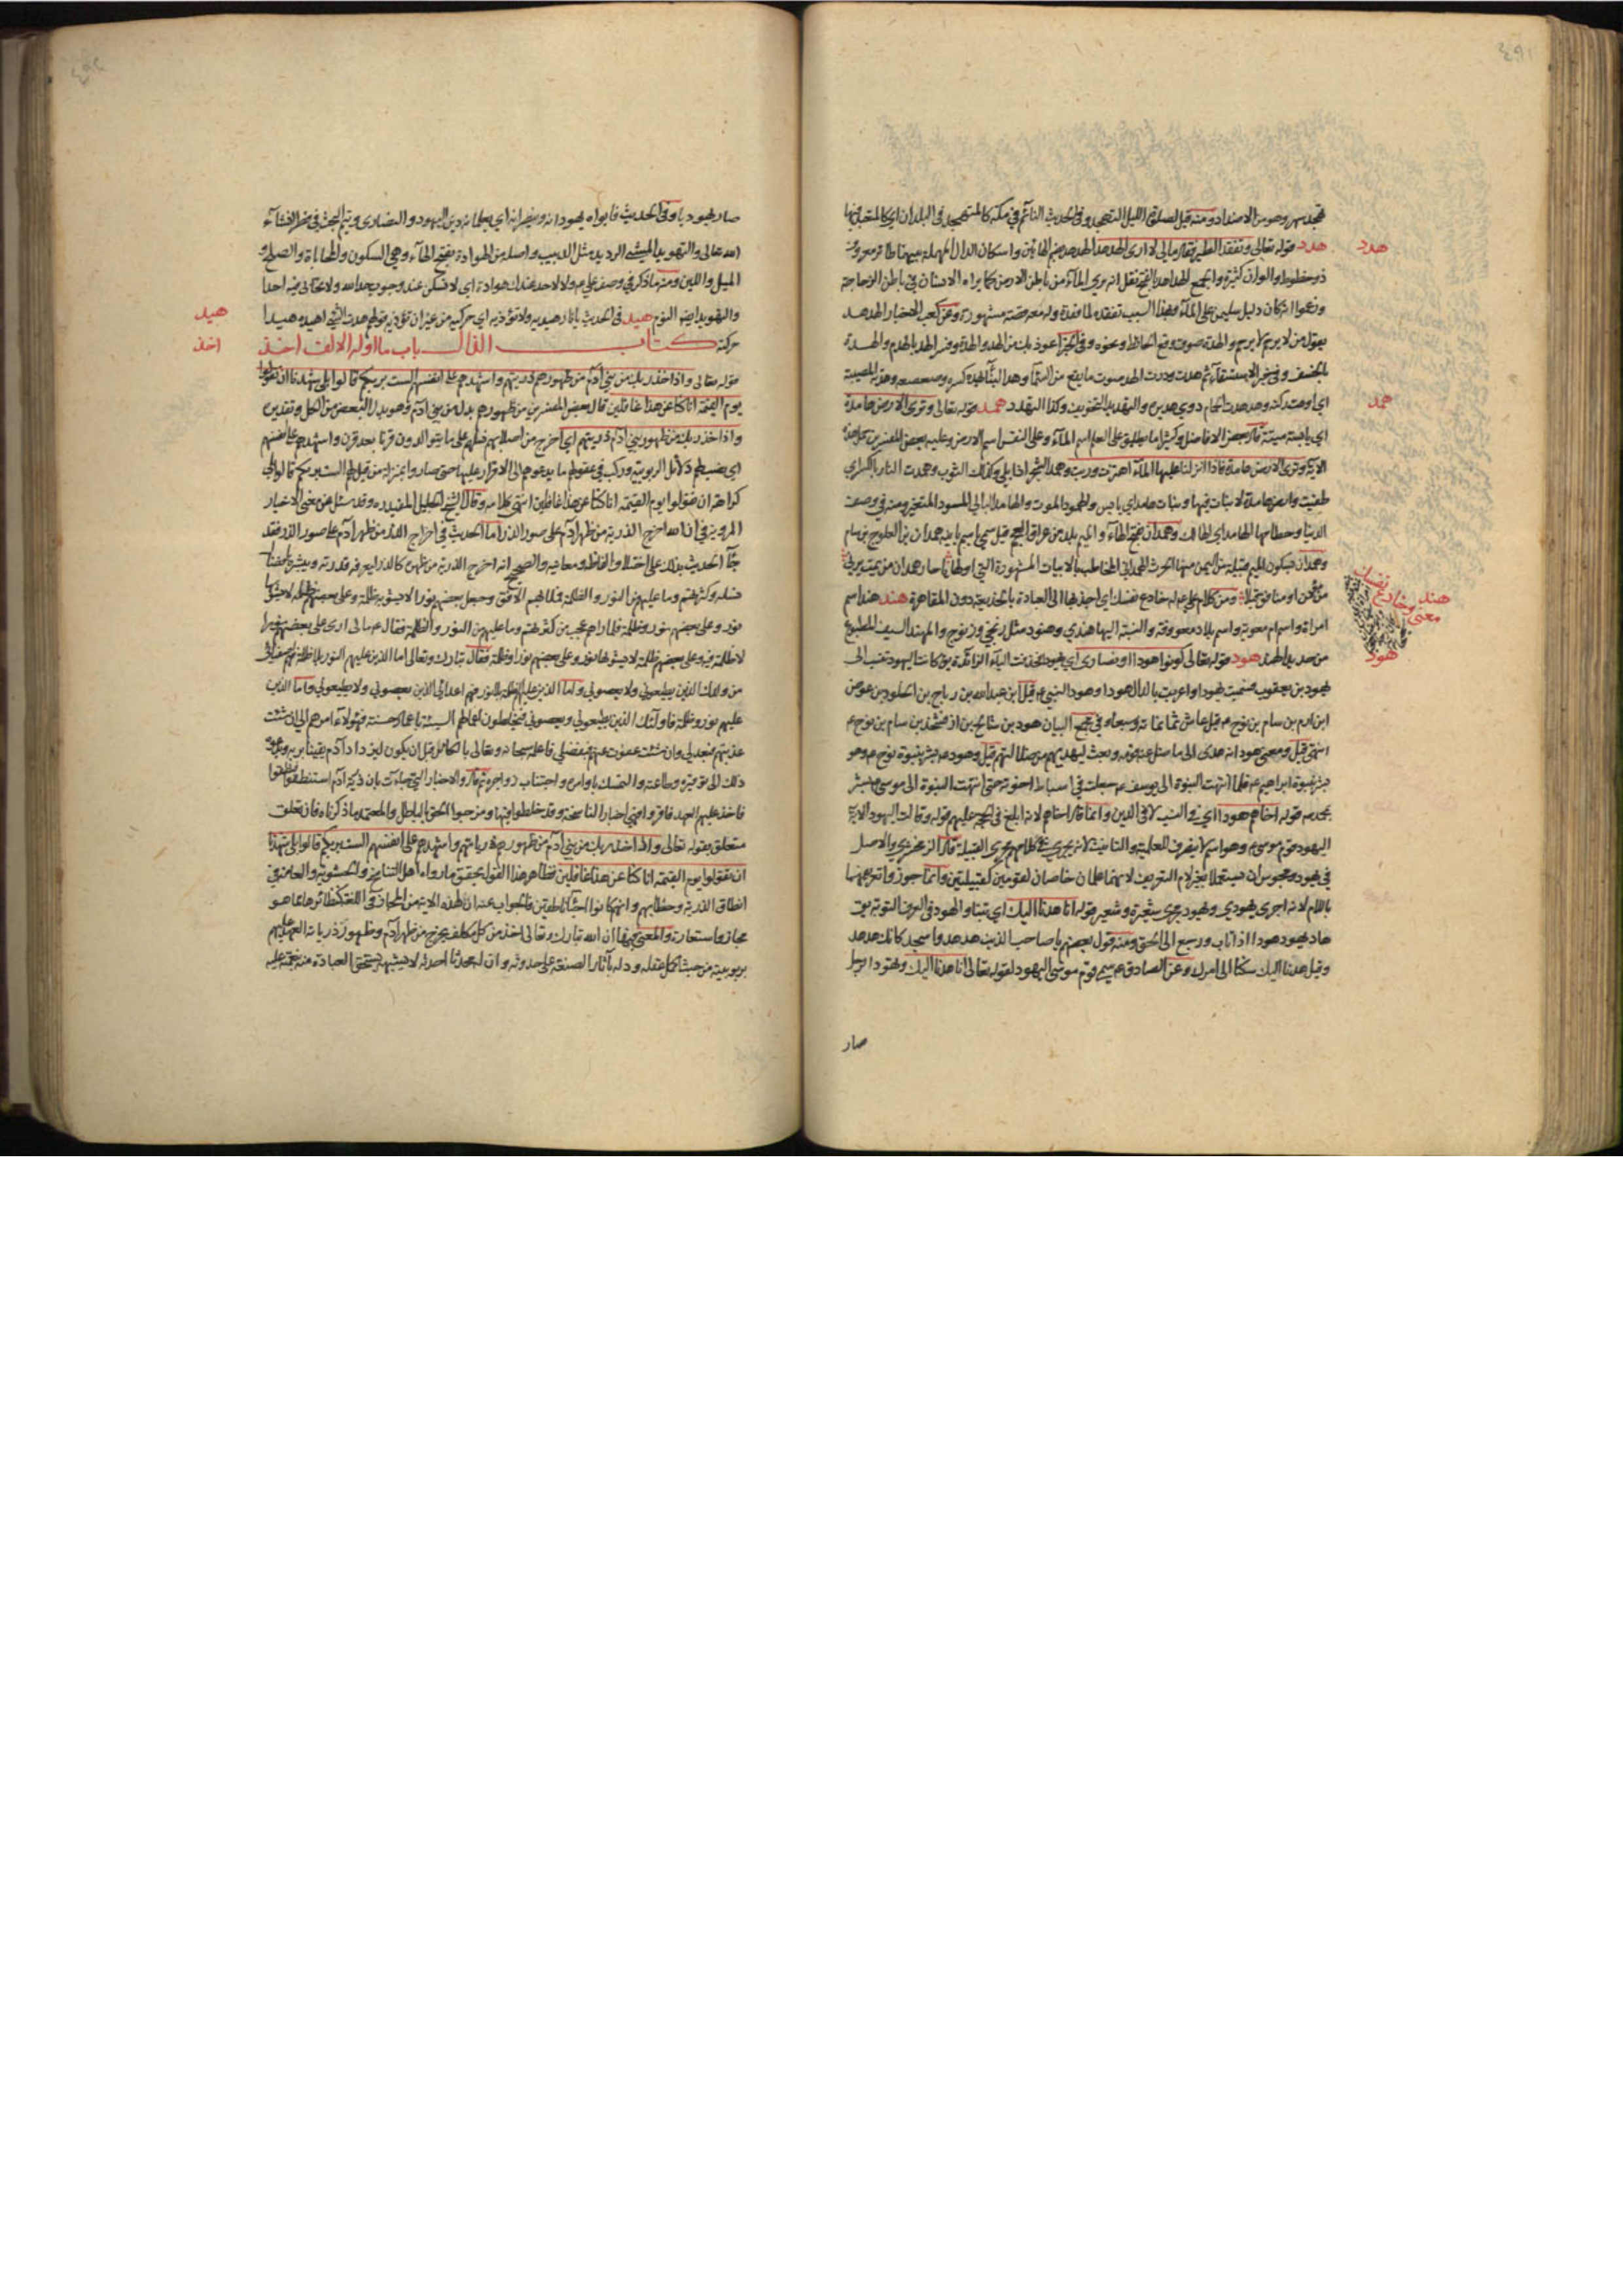 ٤٩١
تهجد سهر وهو من الاضداد ومنه قيل لصلوة الليل التهجد وفي الحديث النائم في مكة كالمتهجد في البلدان اي كالمتعبد فيها
هدد قوله تعالى وتفقد الطير فقال ما لي لا ارى الهدهد الهدهد بضم الهائين واسكان الدال المهملة بينهما طائر معروف
هدد
ذو خطوط والوان كثيرة والجمع الهداهد بالفتح نقل انه يرى الماء من باطن الارض كما يراه الانسان في باطن الزجاجة
وزعموا انه كان دليل سليمن على الماء وبهذا السبب تفقده لما فقده وله معه قصة مشهورة وعن كعب الاخبار الهدهد
يقول من لا يرحم لا يرحم والهدة صوت وقع الحائط ونحوه وفي الخبر اعوذ بك من الهد والهدة وفسر الهد بالهدم والهدة
بالخسف وفي خبر الاستسقاء ثم هدت ودرت الهد صوت ما يقع من السماء وهد البناء يهده كسره وضعضعه وهدته المصيبة
اي اوهنت ركنه وهدهدت الحمام دوي هديره والتهديد التخويف وكذا التهدد همد قوله تعالى وترى الارض هامدة
همد
اي يابسة ميتة قال بعض الافاضل وكثيرا ما يطلق على العلم اسم الماء وعلى النفس اسم الارض وعليه بعض المفسرين حمل هذه
الاية وترى الارض هامدة فاذا انزلنا عليها الماء اهتزت وربت وهمد الشجر اذا بلي وكذلك الثوب وهمدت النار بالكسر اي
طفيت وارض هامدة لا نبات فيها ونبات هامد اي يابس والهمود الموت والهامد البالي المسود المتغير ومنه في وصف
الدنيا وحطامها الهامد اي الهالك وهمدان بفتح الهاء والميم بلد من عراق العجم قيل سمي باسم بانيه همدان بن الفلوج بن سام
وهمدان بسكون الميم قبيلة من اليمن منها الحرث الهمداني المخاطب بالابيات المشهورة التي اولها يا حار همدان من يمت يرني
من مؤمن او منافق قبلا ومن كلام علي عليه خادع نفسك اي اجذبها الى العبادة بالخديعة دون المقاهرة هند هند اسم
هند
خادع نفسك
ومعنى
امراة واسم ام معوية واسم بلاد معروفة والنسبة اليها هندي وهنود مثل زنجي وزنوج والمهند السيف المطبوع
من حديد الهند هود قوله تعالى كونوا هودا او نصارى اي يهودا فحذفت الياء الزائدة يق كانت اليهود تنسب الى
هود
يهود بن يعقوب فسميت يهودا واعربت بالدال هودا وهود النبي ع قيل ابن عبد الله بن رباح بن الخلود بن عوص
ابن ارم بن سام بن نوح ع قيل عاش ثمانمائة وسبعا وفي مجمع البيان هود بن شالخ بن ارفخشذ بن سام بن نوح ع
انتهى قيل ومعنى هود انه هدى الى ما ضل عنه قومه وبعث ليهديهم من ضلالتهم قيل وهود مبشر بنبوة نوح ع وهو
مبشر بنبوة ابراهيم ع فلما انتهت النبوة الى يوسف ع جعلت في اسباط اخوته حتى انتهت النبوة الى موسى مبشر
بمحمد ص قوله اخاهم هودا اي في النسب لا في الدين وانما قال اخاهم لانه ابلغ في الحجة عليهم قوله وقالت اليهود الاية
اليهود قوم موسى ع وهو اسم لا ينصرف للعلمية والتانيث لانه يجري في كلامهم مجرى القبيلة قال الزمخشري والاصل
في يهود ومجوس ان يستعملا بغير لام التعريف لانهما علمان خاصان لقومين كقبيلتين وانما جوز واتعريفهما
باللام لانه اجرى يهودي ويهود مجرى شعيرة وشعير قوله انا هدنا اليك اي تبنا والهود في العرف التوبة يق
هاد يهود هودا اذا تاب ورجع الى الحق ومنه قول بعضهم يا صاحب الذنب هد هد واسجد كانك هدهد
وقيل هدنا اليك سكنا الى امرك وعن الصادق ع سمي قوم موسى اليهود لقوله تعالى انا هدنا اليك وتهود الرجل
صار
٤٩٢
صار يهوديا وفي الحديث فابواه يهودانه وينصرانه اي يعلمانه دين اليهود والنصارى ويتم البحث في فطر انشاء
الله تعالى والتهويد المشي الرويد مثل الدبيب واصله من الهوادة بفتح الهاء وهي السكون والمحاباة والصلح و
الميل واللين ومنه ما ذكر في وصف علي ع ولا لاحد عندك هوادة اي لا تسكن عند وجوب حد الله ولا تحابي فيه احدا
والتهويد ايضا النوم هيد في الحديث يا نار هيديه ولا تؤذيه اي حركيه من غير ان تؤذيه قولهم هدت الشئ اهيده هيدا
هيد
حركته كتاب الذال باب ما اوله الالف اخذ
اخذ
قوله تعالى واذ اخذ ربك من بني آدم من ظهورهم ذريتهم واشهدهم على انفسهم الست بربكم قالوا بلى شهدنا ان تقولوا
يوم القيمة انا كنا عن هذا غافلين قال بعض المفسرين من ظهورهم بدل من بني آدم وهو بدل البعض من الكل وتقديره
واذ اخذ ربك من ظهور بني آدم ذريتهم اي اخرج من اصلابهم نسلهم على ما يتوالدون قرنا بعد قرن واشهدهم على انفسهم
اي نصب لهم دلائل الربوبية وركب في عقولهم ما يدعوهم الى الاقرار عليها حتى صاروا بمنزلة من قيل لهم الست بربكم قالوا بلى
كراهة ان تقولوا يوم القيمة انا كنا عن هذا غافلين انتهى كلامه وقال الشيخ الجليل المفيد ره وقد سئل عن معنى الاخبار
المروية في ان الله اخرج الذرية من ظهر آدم على صور الذر اما الحديث في اخراج الذر من ظهر آدم على صور الذر فقد
جاء الحديث بذلك على اختلاف الفاظه ومعانيه والصحيح انه اخرج الذرية من ظهره كالذر ليعرفه قدرته ويبشره بافضال
نسله وكثرتهم وما عليهم من النور والظلمة فملا بهم الافق وجعل بعضهم نورا لا يشوبه ظلمة وعلى بعضهم ظلمة لا يشوبها
نور وعلى بعضهم نور وظلمة فلما راهم عجب من كثرتهم وما عليهم من النور والظلمة فقال ع ما لي ارى على بعضهم نورا
لا ظلمة فيه وعلى بعضهم ظلمة لا يشوبها نور وعلى بعضهم نورا وظلمة فقال تبارك وتعالى اما الذين عليهم النور بلا ظلمة فهم اصفيائي
من ولدك الذين يطيعوني ولا يعصوني واما الذين عليهم الظلمة بلا نور فهم اعدائي الذين يعصوني ولا يطيعوني واما الذين
عليهم نور وظلمة فاولئك الذين يطيعوني ويعصوني فيخلطون اعمالهم السيئة باعمال حسنة فهؤلاء امرهم الي ان شئت
عذبتهم فبعدلي وان شئت عفوت عنهم فبفضلي فاعلمه سبحانه وتعالى بما كان قبل ان يكون ليزداد آدم يقينا بربه ويدعوه
ذلك الى توقيره وطاعته والتمسك باوامره واجتناب زواجره ثم قال والاخبار التي جاءت بان ذرية آدم استنطقوا فنطقوا
فاخذ عليهم العهد فاقروا فهي اخبار التناسخية وقد خلطوا فيها ومزجوا الحق بالباطل والمعتمد ما ذكرناه فان تعلق
متعلق بقوله تعالى واذ اخذ ربك من بني آدم من ظهورهم ذرياتهم واشهدهم على انفسهم الست بربكم قالوا بلى شهدنا
ان تقولوا يوم القيمة انا كنا عن هذا غافلين فظاهر هذا القول يحقق ما رواه اهل التناسخ والحشوية والعامة في
انطاق الذرية وخطابهم وانهم كانوا احياء ناطقين فالجواب عنه ان لهذه الاية من المجاز في اللغة كنظائرها مما هو
مجاز واستعارة والمعنى فيها ان الله تبارك وتعالى اخذ من كل مكلف يخرج من ظهر آدم وظهور ذرياته العهد عليهم
بربوبيته من حيث اكمل عقله ودله بآثار الصنعة على حدوثه وان له محدثا احدثه لا يشبهه يستحق العبادة منه بنعمته عليه